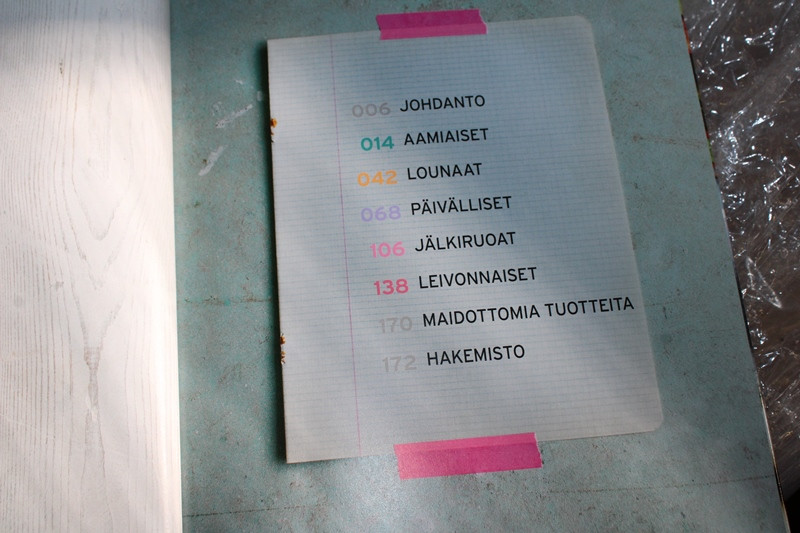 006 JOHDANTO
014 AAMIAISET
042 LOUNAAT
068 PÄIVÄLLISET
106 JÄLKIRUOAT
138 LEIVONNAISET
170 MAIDOTTOMIA TUOTTEITA
172 HAKEMISTO